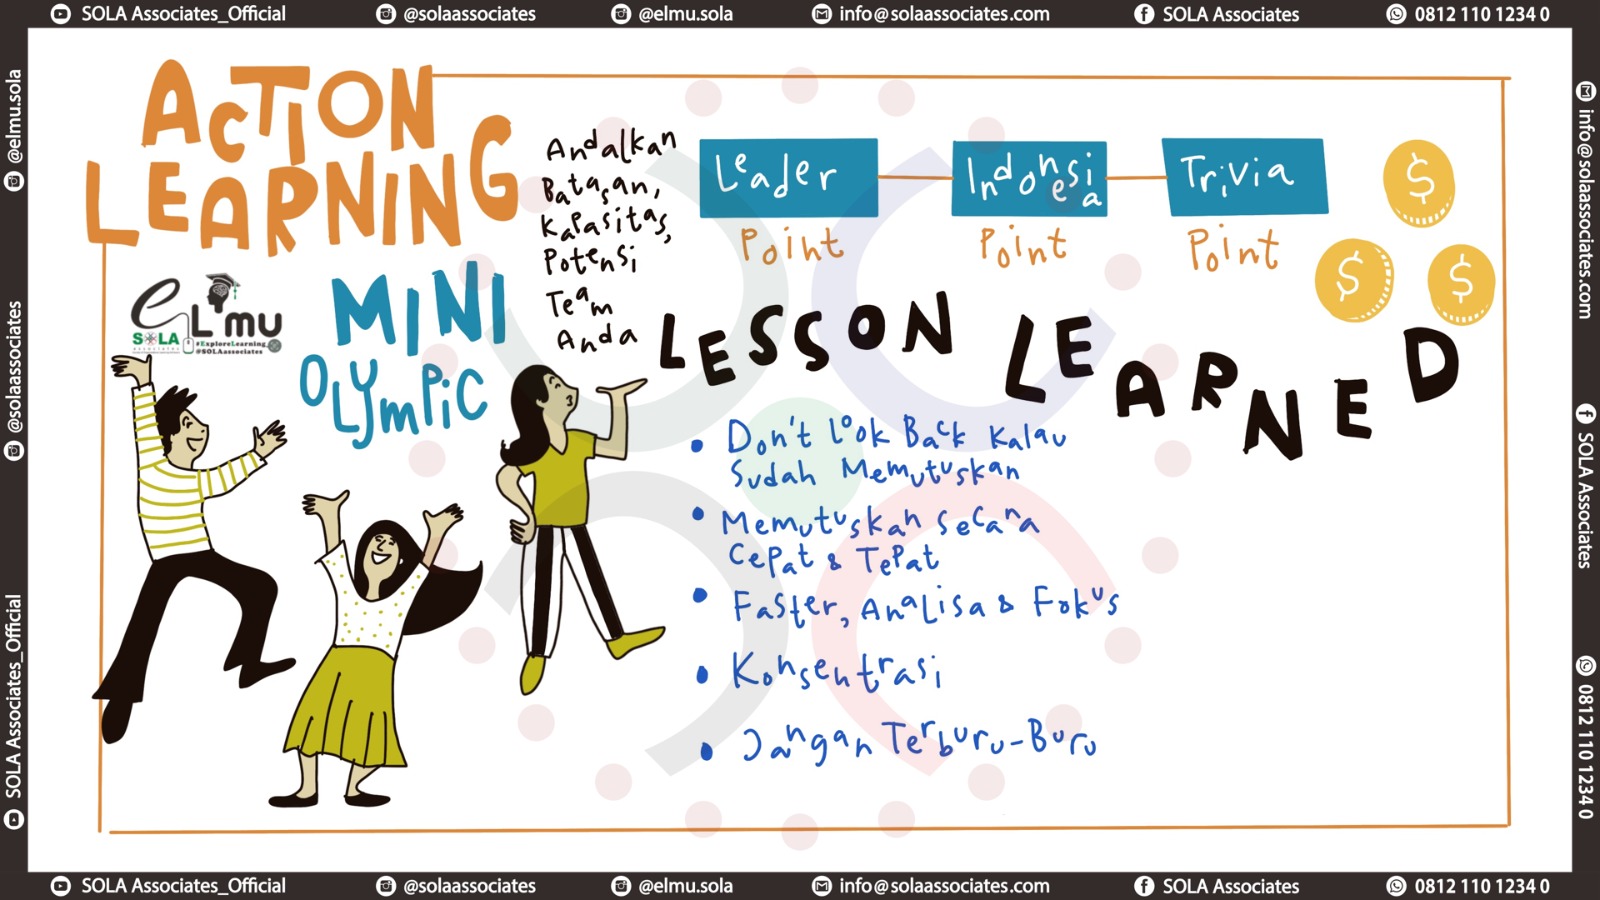 SOLA Associates_Official @solaassociates @elmu.sola info@solaassociates.com SOLA Associates 0812 110 1234 0
@elmu.sola
@solaassociates
SOLA Associates_Official
ACTION
LEARNING
eL'mu
SOLA
#ExploreLearning
#SOLAassociates
MINI
OLYmPiC
Andalkan
Batasan,
Kapasitas,
Potensi
Team
Anda
Leader
Point
Indonesia
Point
Trivia
Point
$
$
$
LESSON LEARNED
• Don't Look Back Kalau
Sudah Memutuskan
• Memutuskan Secara
Cepat & Tepat
• Faster, Analisa & Fokus
• Konsentrasi
• Jangan Terburu-Buru
info@solaassociates.com
SOLA Associates
0812 110 1234 0
SOLA Associates_Official @solaassociates @elmu.sola info@solaassociates.com SOLA Associates 0812 110 1234 0